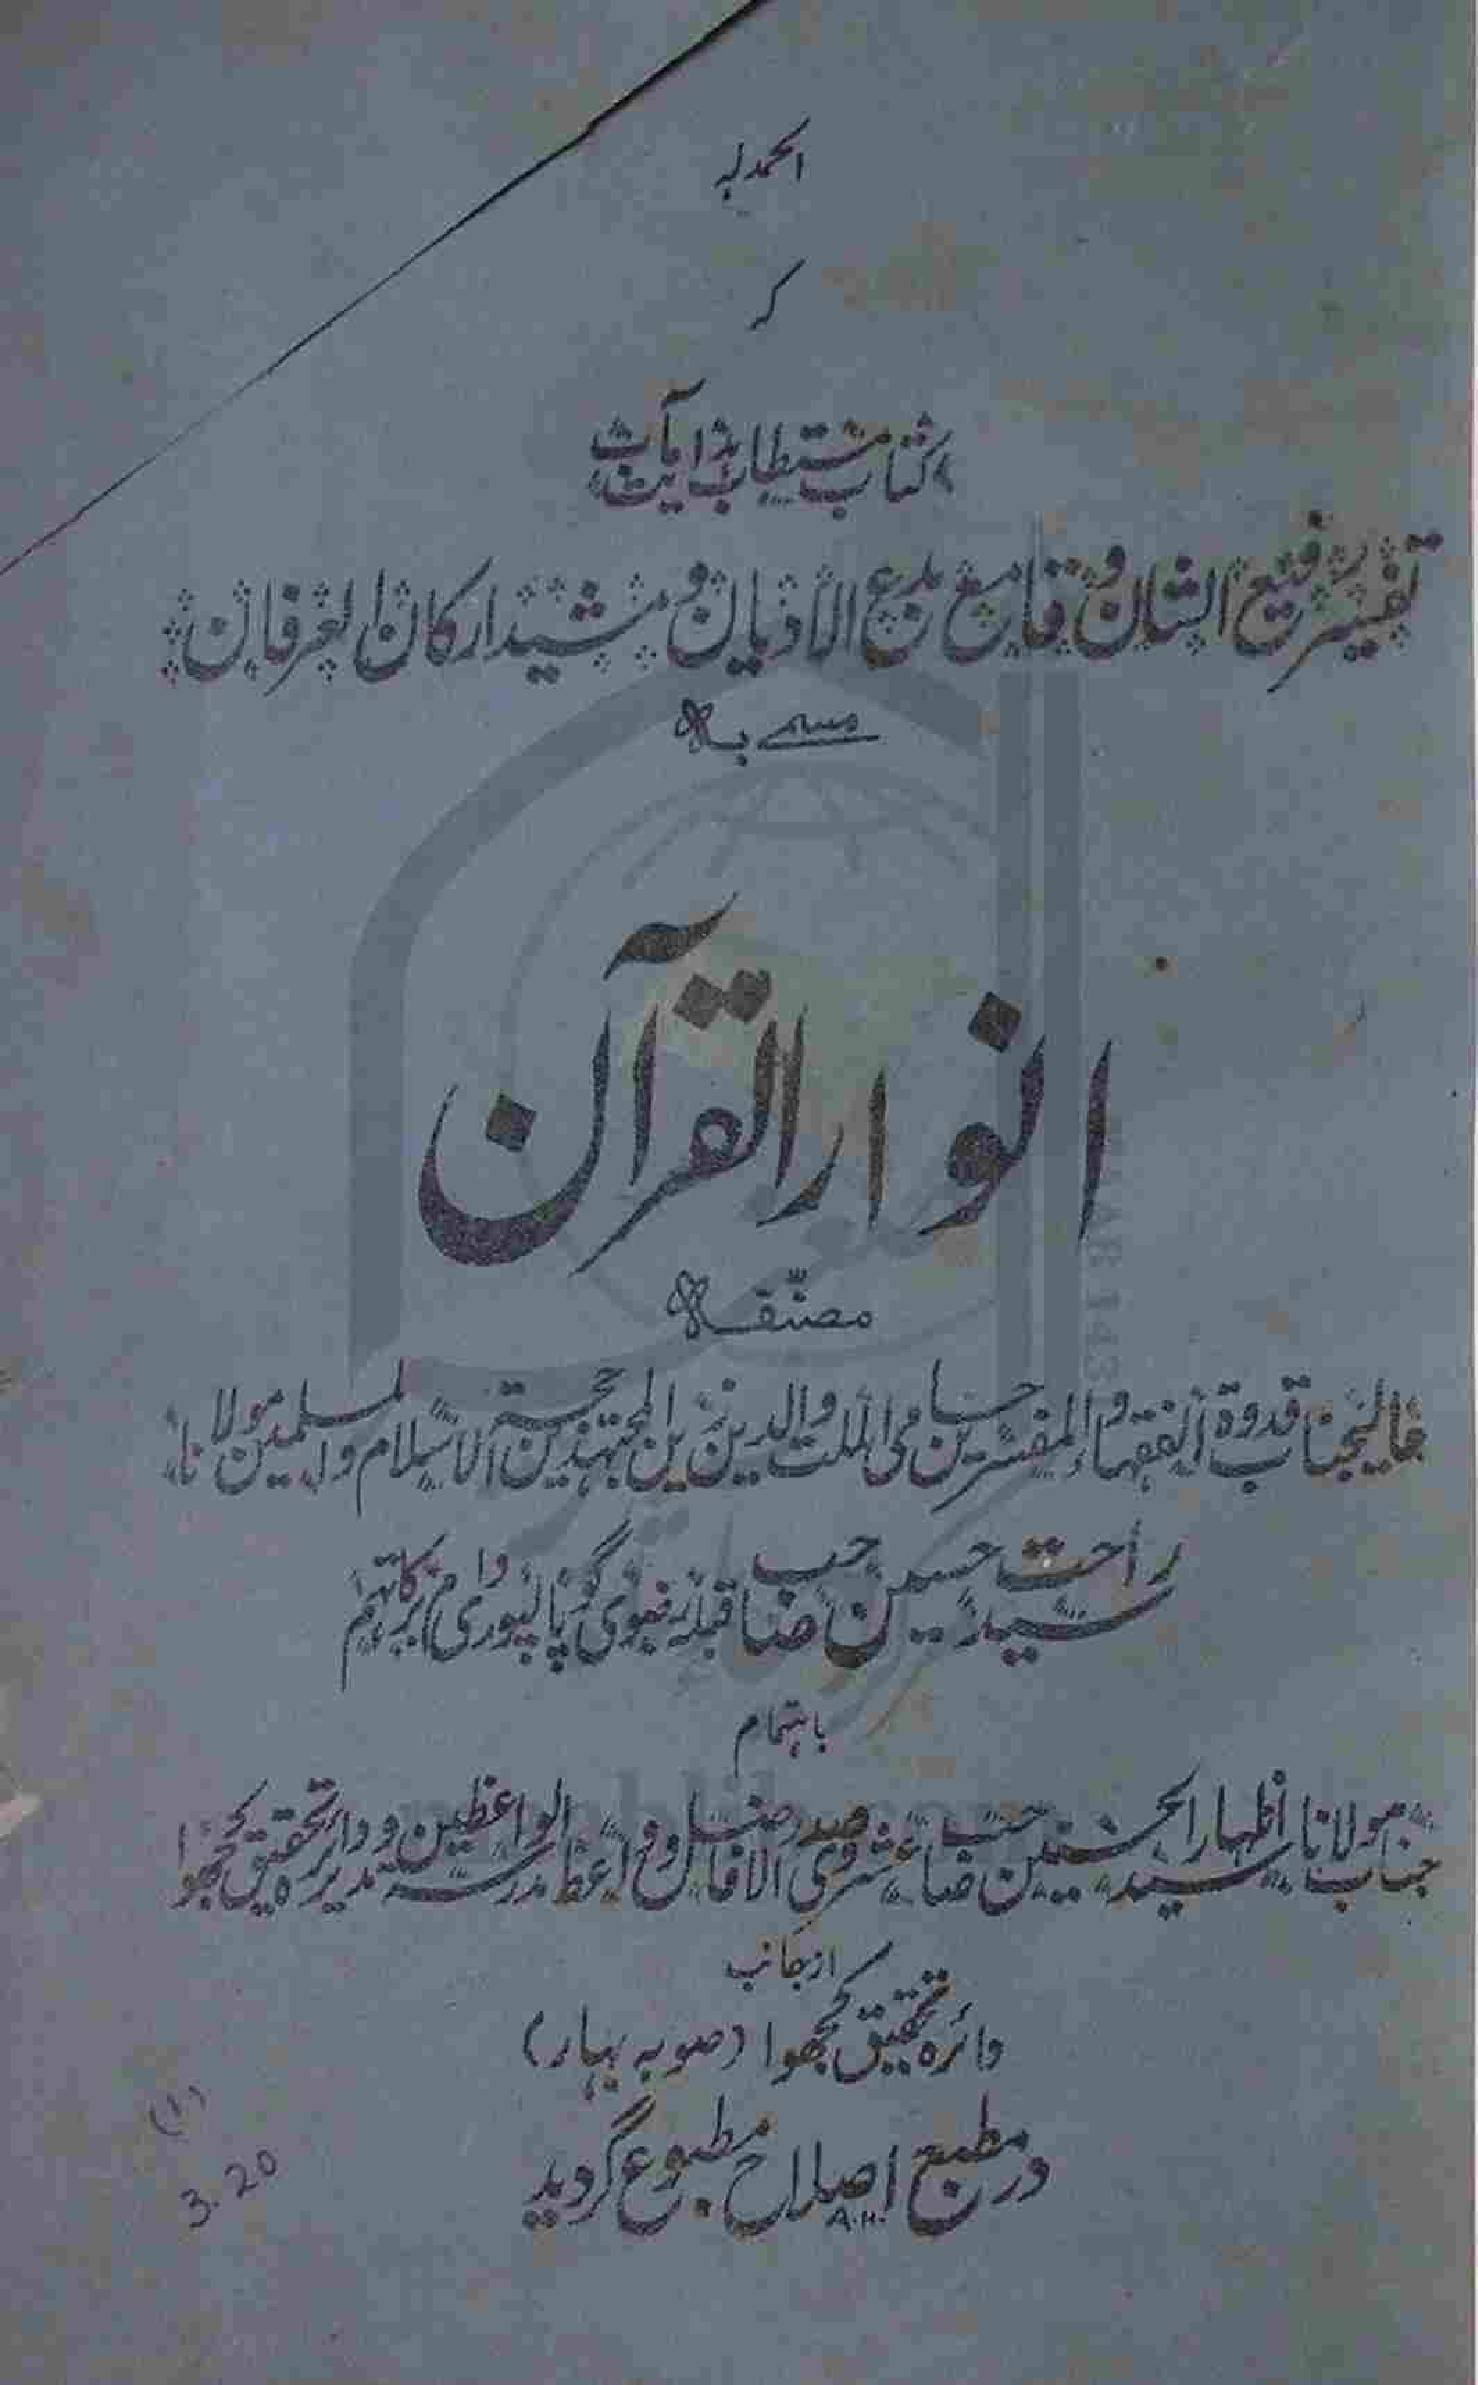 الحمد لله
کہ
کتاب مستطاب ہدایت آیات
تفسیر رفیع الشان و قامع بدع الادیان و مشید ارکان العرفان
مسمے بہ
انوار القرآن
مصنفہ
عالیجناب قدوة الفقہاء والمفسرین حامی الملت والدین زین المجتہدین حجة الاسلام والمسلمین مولانا
سید راحت حسین صاحب قبلہ رضوی گوپالپوری دام برکاتہم
باہتمام
جناب مولانا سید اظہار الحسنین صاحب صدر الافاضل و واعظ مدرسة الواعظین و مدیر دائرہ تحقیق کھجوا
از جانب
دائرہ تحقیق کھجوا (صوبہ بہار)
در مطبع اصلاح مطبوع گردید
A.H.
(۱)
3.20